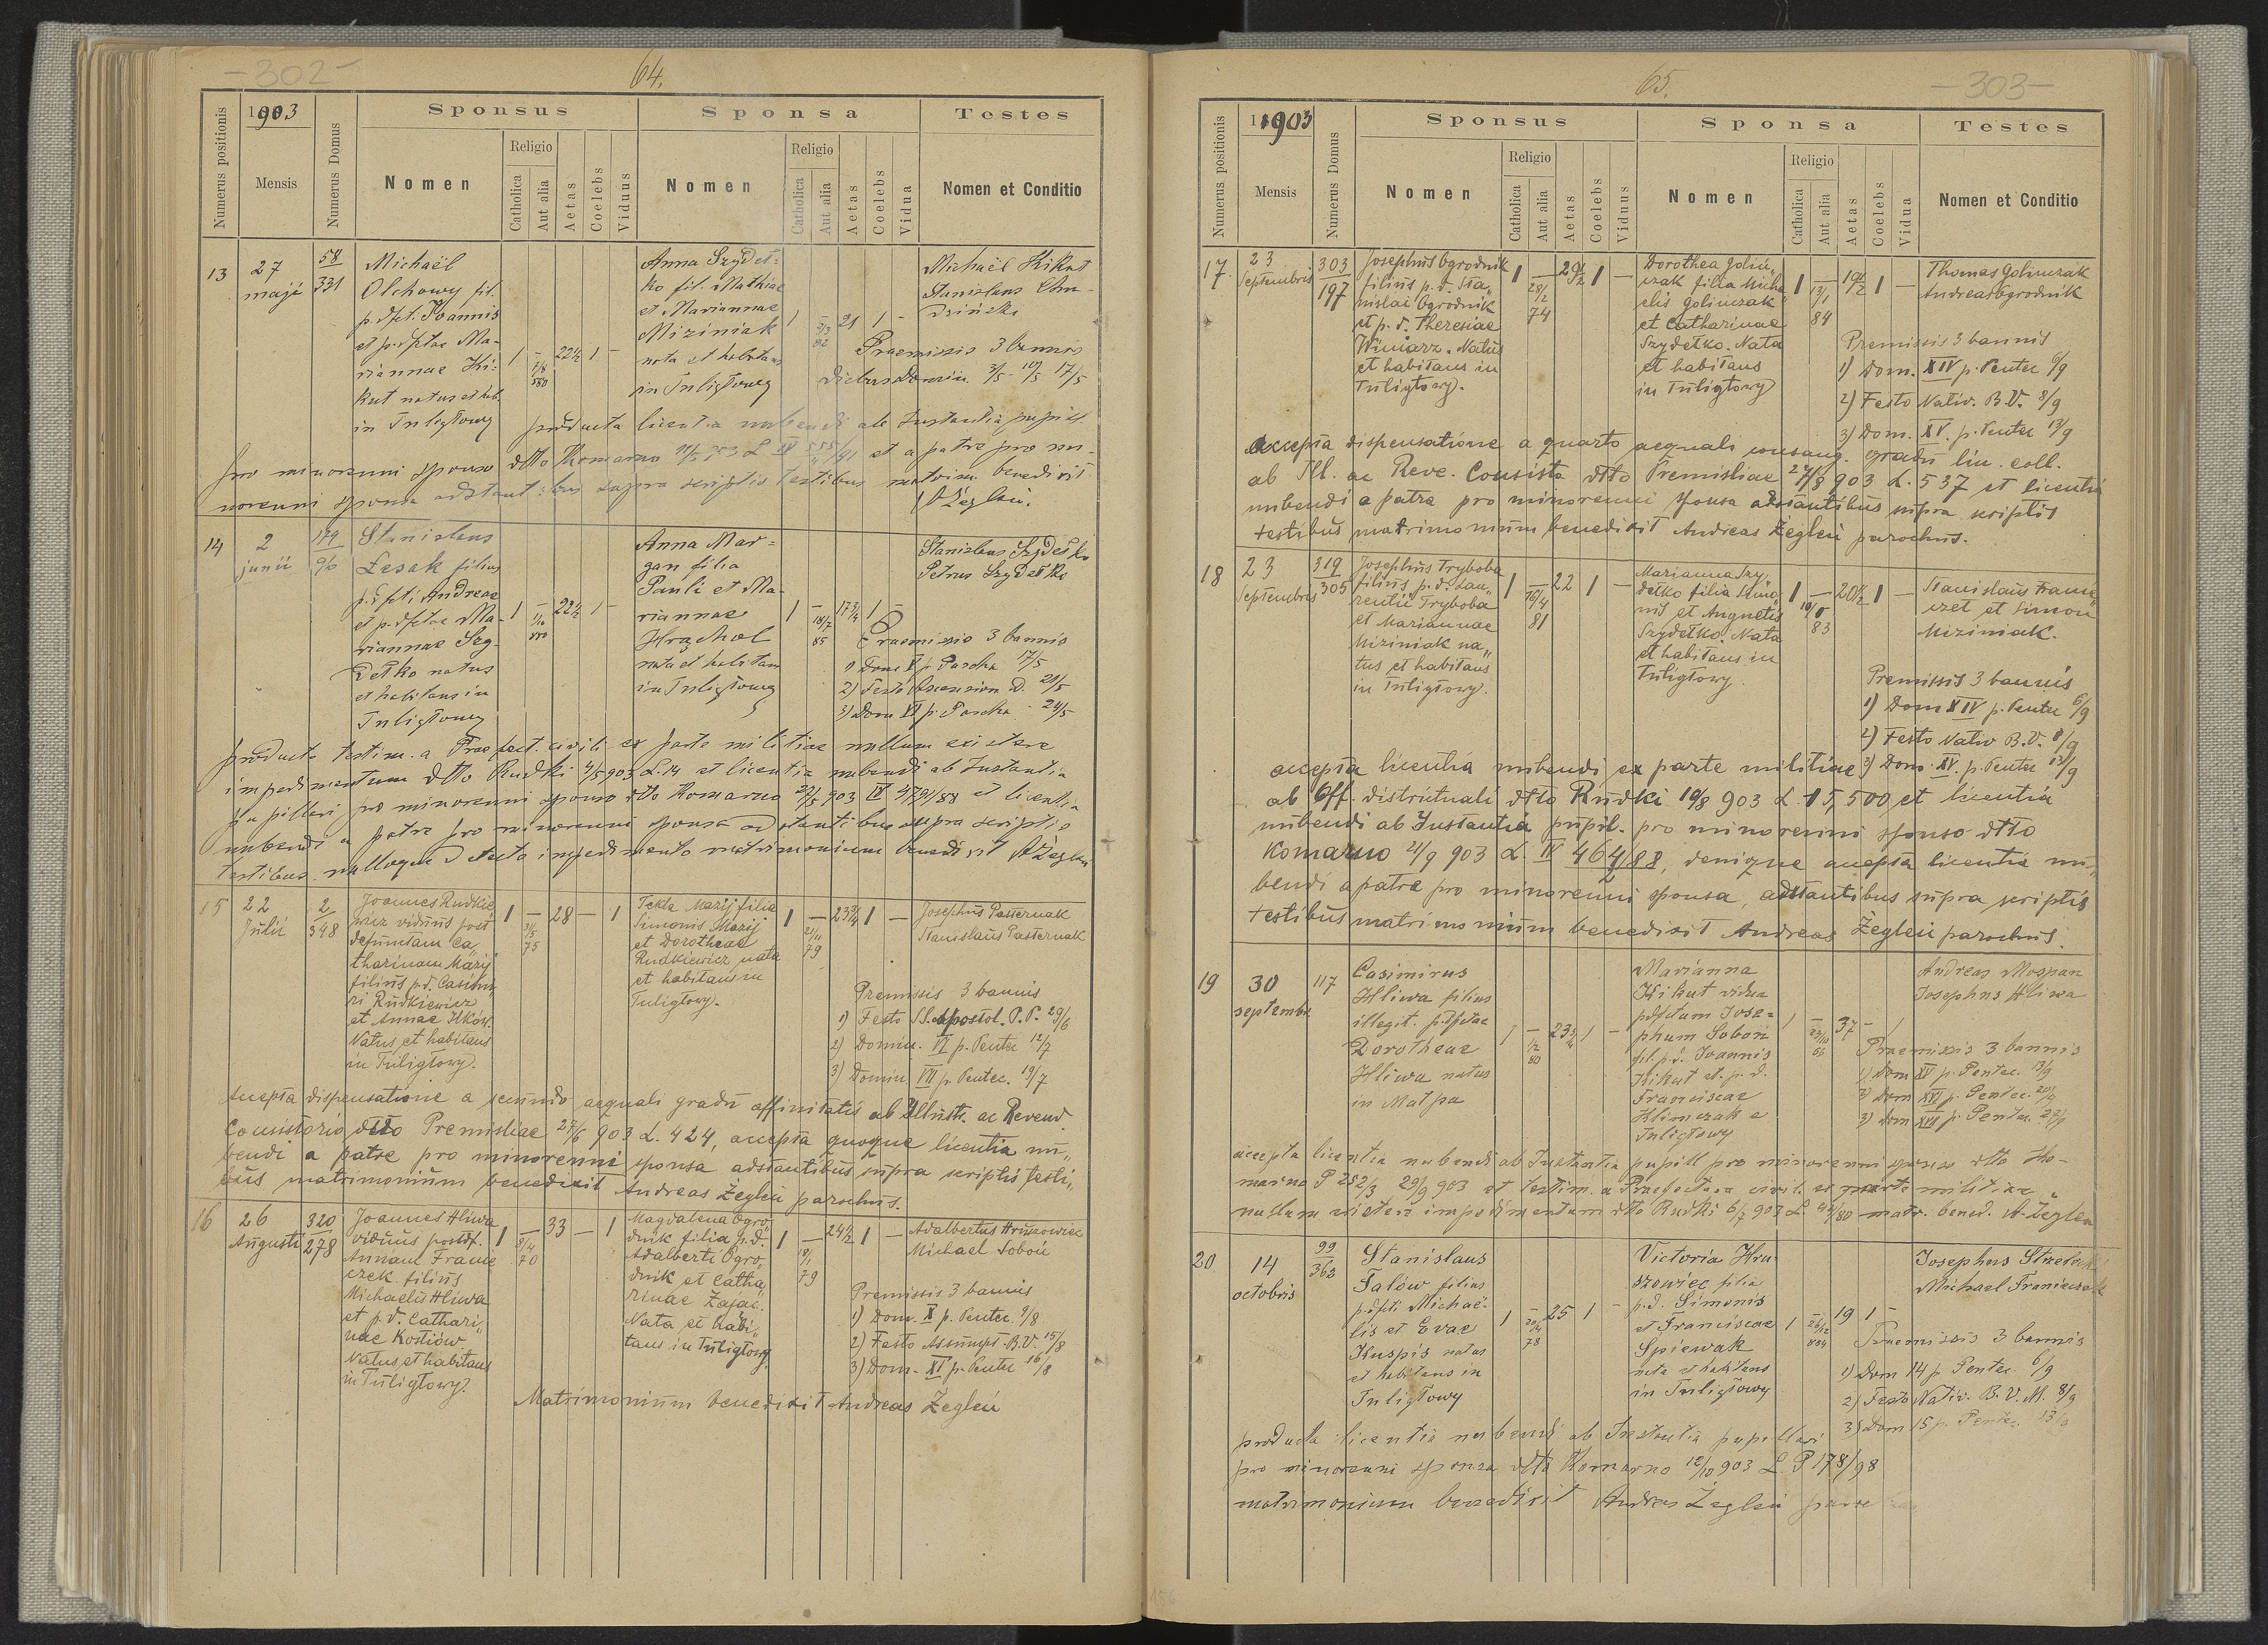 -302-
64.
Numerus positionis
1903
Mensis
Numerus Domus
Sponsus
Nomen
Religio
Catholica
Aut alia
Aetas
Coelebs
Viduus
Sponsa
Nomen
Religio
Catholica
Aut alia
Aetas
Coelebs
Vidua
Testes
Nomen et Conditio
13
27
maji
58
331
Michaël
Olchowy fil.
p. dfct. Joannis
et p. dfctae Ma-
riannae Ki-
kut natus et hab.
in Tuligłowy
1 - 22½ 1 -
Anna Szydeł-
ko fil. Mathiae
et Mariannae
Miziniak
nata et habitans
in Tuligłowy
1 - 21 1 -
Michaël Kikut
Stanislaus
Praemissis 3 bannis
diebus Domin. 3/5 10/5 17/5
producta licentia nubendi ab Instantia pupill.
pro minorenni sponso dtto Komarno et a patre pro mi-
norenni sponsa adstantibus supra scriptis testibus matrim. benedixit
A Żegleń.
14
2
junii
179
96
Stanislaus
Lesak filius
p. dfcti Andreae
et p. dfctae Ma-
riannae Szy-
dełko natus
et habitans in
Tuligłowy
1 - 22½ 1 -
Anna Mar-
gan filia
Pauli et Ma-
riannae
Hrąchol
nata et habitans
in Tuligłowy
1 - 17¾ 1 -
18/7
85
Stanislaus Szydełko
Petrus Szydełko
Praemissis 3 bannis
1) Dom V p. Pascha 17/5
2) Festo Ascension D. 21/5
3) Dom VI p. Pascha 24/5
producto testim. a Praefect. civili ex parte militiae nullum existere
impedimentum dtto Rudki 4/5 903 L. 14 et licentia nubendi ab Instantia
pupillari pro minorenni sponso dtto Komarno 27/5 903 IV 479/88 et licentia
nubendi a patre pro minorenni sponsa adstantibus supra scriptis
testibus nulloque detecto impedimento matrimonium benedixit A Żegleń
15
22
Julii
2
348
Joannes Rudkie
wicz viduus post
defunctam Ca„
tharinam Mazij
filius p.d. Casimi„
ri Rudkiewicz
et Annae Ilków.
Natus et habitans
in Tuligłowy.
1 - 28 - 1
31/5
75
Tekla Mazij filia
Simonis Mazij
et Dorotheae
Rudkiewicz nata
et habitans in
Tuligłowy.
1 - 23¾ 1 -
21/11
79
Josephus Pasternak
Stanislaus Pasternak
Premissis 3 bannis
1) Festo SS. Apostol. P.P. 29/6
2) Domin. VI p. Pentec 12/7
3) Domin. VII p. Pentec. 19/7
Accepta dispensatione a secundo aequali gradu affinitatis ab Illustr. ac Revend.
Consistorio dtto Premisliae 27/6 903 L. 424, accepta quoque licentia nu„
bendi a patre pro minorenni sponsa adstantibus supra scriptis testi„
bus matrimonium benedixit Andreas Żegleń parochus.
16
26
Augusti
320
278
Joannes Hliwa
viduus postdf.
Annam Franie
czek filius
Michaelis Hliwa
et p.d. Cathari„
nae Kostiów
Natus et habitans
in Tuligłowy.
1 - 33 - 1
8/4
70
Magdalena Ogro„
dnik filia p.d.
Adalberti Ogro„
dnik et Catha„
rinae Zając.
Nata et habi„
tans in Tuligłowy
1 - 24½ 1 -
18/1
79
Adalbertus Hruszowiec
Michael Soboń
Premissis 3 bannis
1) Dom. X p. Pentec. 9/8
2) Festo Assumpt. B.V. 15/8
3) Dom. XI p. Pentec 16/8
Matrimonium benedixit Andreas Żegleń
65.
-303-
Numerus positionis
1903
Mensis
Numerus Domus
Sponsus
Nomen
Religio
Catholica
Aut alia
Aetas
Coelebs
Viduus
Sponsa
Nomen
Religio
Catholica
Aut alia
Aetas
Coelebs
Vidua
Testes
Nomen et Conditio
17.
23
Septembris
303
197
Josephus Ogrodnik
filius p.d. Sta„
nislai Ogrodnik
et p.d. Theresiae
Winiarz. Natus
et habitans in
Tuligłowy.
1 - 29½ 1 -
28/2
74
Dorothea Golin„
czak filia Micha„
elis Golinczak
et Catharinae
Szydełko. Nata
et habitans
in Tuligłowy
1 - 19½ 1 -
13/1
84
Thomas Golinczak
Andreas Ogrodnik
Premissis 3 bannis
1) Dom. XIV p. Pentec 6/9
2) Festo Nativ. B.V. 8/9
3) Dom. XV. p. Pentec 13/9
Accepta dispensatione a quarto aequali consang. gradu lin. coll.
ab Ill. ac Reve. Consisto dtto Premisliae 27/8 903 L. 537 et licentia
nubendi a patre pro minorenni sponsa adstantibus supra scriptis
testibus matrimonium benedixit Andreas Żegleń parochus.
18
23
Septembris
319
305
Josephus Tryboba
filius p.d. Lau„
rentii Tryboba
et Mariannae
Miziniak na„
tus et habitans
in Tuligłowy.
1 - 22 1 -
16/4
81
Marianna Szy„
dełko filia Simo„
nis et Augnetis
Szydełko. Nata
et habitans in
Tuligłowy
1 - 20½ 1 -
83
Stanislaus Franie
czek et Simon
Miziniak.
Premissis 3 bannis
1) Dom XIV p. Pentec 6/9
2) Festo Nativ B.V. 8/9
3) Dom. XV. p. Pentec 13/9
accepta licentia nubendi ex parte militiae
ab Off. districtuali dtto Rudki 19/8 903 L. 15,500 et licentia
nubendi ab Instantia pupil. pro minorenni sponso dtto
Komarno 21/9 903 L. IV 464/88, denique accepta licentia nu„
bendi a patre pro minorenni sponsa, adstantibus supra scriptis
testibus matrimonium benedixit Andreas Żegleń parochus.
19
30
septembr.
117
Casimirus
Hliwa filius
illegit. p. dfctae
Dorotheae
Hliwa natus
in Małpa
1 - 23¾ 1 -
80
Marianna
Kikut vidua
p. dfctum Jose-
phum Soboń
fil. p.d. Joannis
Kikut et p.d.
Franciscae
Klimczak e
Tuligłowy
1 - 37 - 1
Andreas Mospan
Josephus Hliwa
Praemissis 3 bannis
1) Dom XV p. Pentec. 13/9
2) Dom XVI p. Pentec. 20/9
3) Dom XVII p. Pentec. 27/9
accepta licentia nubendi ab Instantia pupill pro minorenni sponso dtto Ko-
marno P 252/3 29/9 903 et testim. a Praefectura civil. ex parte militiae
nullum existere impedimentum dtto Rudki 6/7 903 L. matr. bened. A. Żegleń
20
14
octobris
99
362
Stanislaus
Fałów filius
p. dfcti Michaë-
lis et Evae
Kuspis natus
et habitans in
Tuligłowy
1 - 25 1 -
78
Victoria Hru-
szowiec filia
p.d. Simonis
et Franciscae
Spiewak
nata et habitans
in Tuligłowy
1 - 19 1 -
26/12
884
Josephus
Michael Franieczek
Praemissis 3 bannis
1) Dom 14 p Pentec. 6/9
2) Festo Nativ. B.V.M. 8/9
3) Dom 15 p. Pentec. 13/9
producta licentia nubendi ab Instantia pupillari
pro minorenni sponsa dtto Komarno 12/10 903 L. P 178/98
matrimonium benedixit Andreas Żegleń